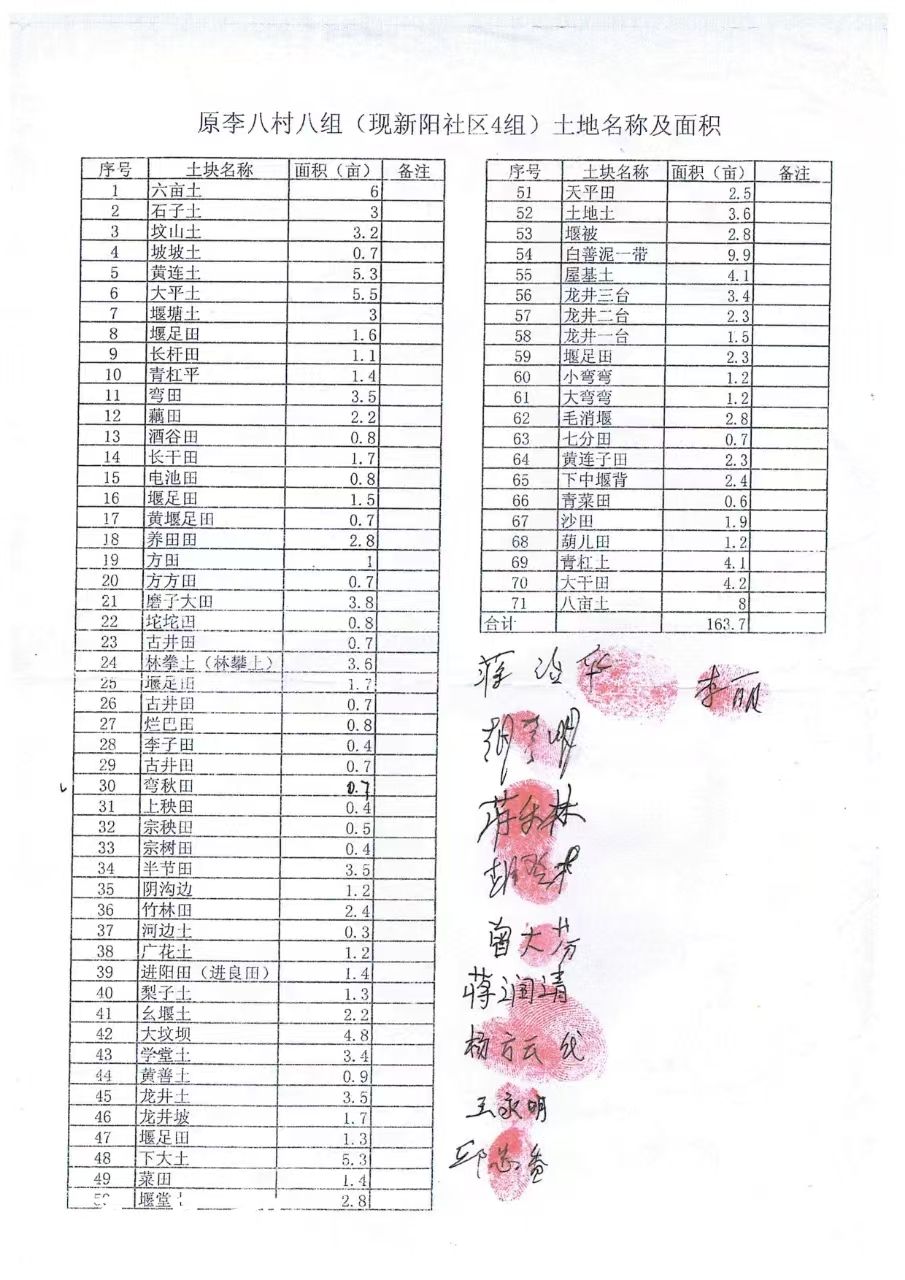 原李八村八组（现新阳社区4组）土地名称及面积
序号 土块名称 面积（亩） 备注
1 六亩土 6
2 石子土 3
3 坟山土 3.2
4 坡坡土 0.7
5 黄连土 5.3
6 大平土 5.5
7 堰塘土 3
8 堰足田 1.6
9 长杆田 1.1
10 青杠平 1.4
11 弯田 3.5
12 藕田 2.2
13 酒谷田 0.8
14 长干田 1.7
15 电池田 0.8
16 堰足田 1.5
17 黄堰足田 0.7
18 养田田 2.8
19 方田 1
20 方方田 0.7
21 磨子大田 3.8
22 坨坨田 0.8
23 古井田 0.7
24 林拳土（林攀上） 3.6
25 堰足田 1.7
26 古井田 0.7
27 烂巴田 0.8
28 李子田 0.4
29 古井田 0.7
30 弯秋田 0.7
31 上秧田 0.4
32 宗秧田 0.5
33 宗树田 0.4
34 半节田 3.5
35 阴沟边 1.2
36 竹林田 2.4
37 河边土 0.3
38 广花土 1.2
39 进阳田（进良田） 1.4
40 梨子土 1.3
41 幺堰土 2.2
42 大坟坝 4.8
43 学堂土 3.4
44 黄善土 0.9
45 龙井土 3.5
46 龙井坡 1.7
47 堰足田 1.3
48 下大土 5.3
49 菜田 1.4
堰堂 2.8
序号 土块名称 面积（亩） 备注
51 天平田 2.5
52 土地土 3.6
53 堰被 2.8
54 白善泥一带 9.9
55 屋基土 4.1
56 龙井三台 3.4
57 龙井二台 2.3
58 龙井一台 1.5
59 堰足田 2.3
60 小弯弯 1.2
61 大弯弯 1.2
62 毛消堰 2.8
63 七分田 0.7
64 黄连子田 2.3
65 下中堰背 2.4
66 青菜田 0.6
67 沙田 1.9
68 葫儿田 1.2
69 青杠上 4.1
70 大干田 4.2
71 八亩土 8
合计 163.7
李丽
曾大芬
蒋润清
杨方云
王永明